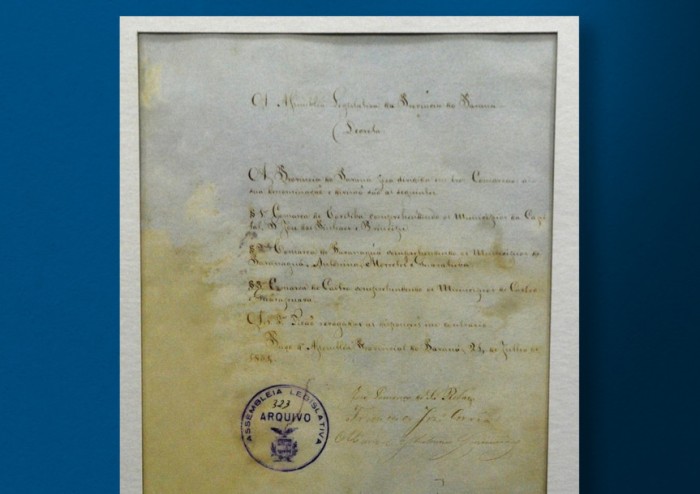 A Assembléa Legislativa da Provincia do Paraná
Decreta
A Provincia do Paraná fica dividida em tres Comarcas, a
sua denominação e divisão são as seguintes
§ 1º Comarca de Coritiba comprehendendo os Municipios da Capi
tal, S José dos Pinhaes e Principe
§ 2º Comarca de Paranaguá comprehendendo os Municipios de
Paranaguá, Antonina, Morretes e Guaratuba
§ 3º Comarca de Castro comprehendendo os Municipios de Castro
e Guarapuava
Art 2º Ficão revogadas as disposições em contrario
Paço d' Assembléa Provincial do Paraná, 24 de Julho de
ASSEMBLEIA LEGISLATIVA
323
ARQUIVO
José
Francisco José